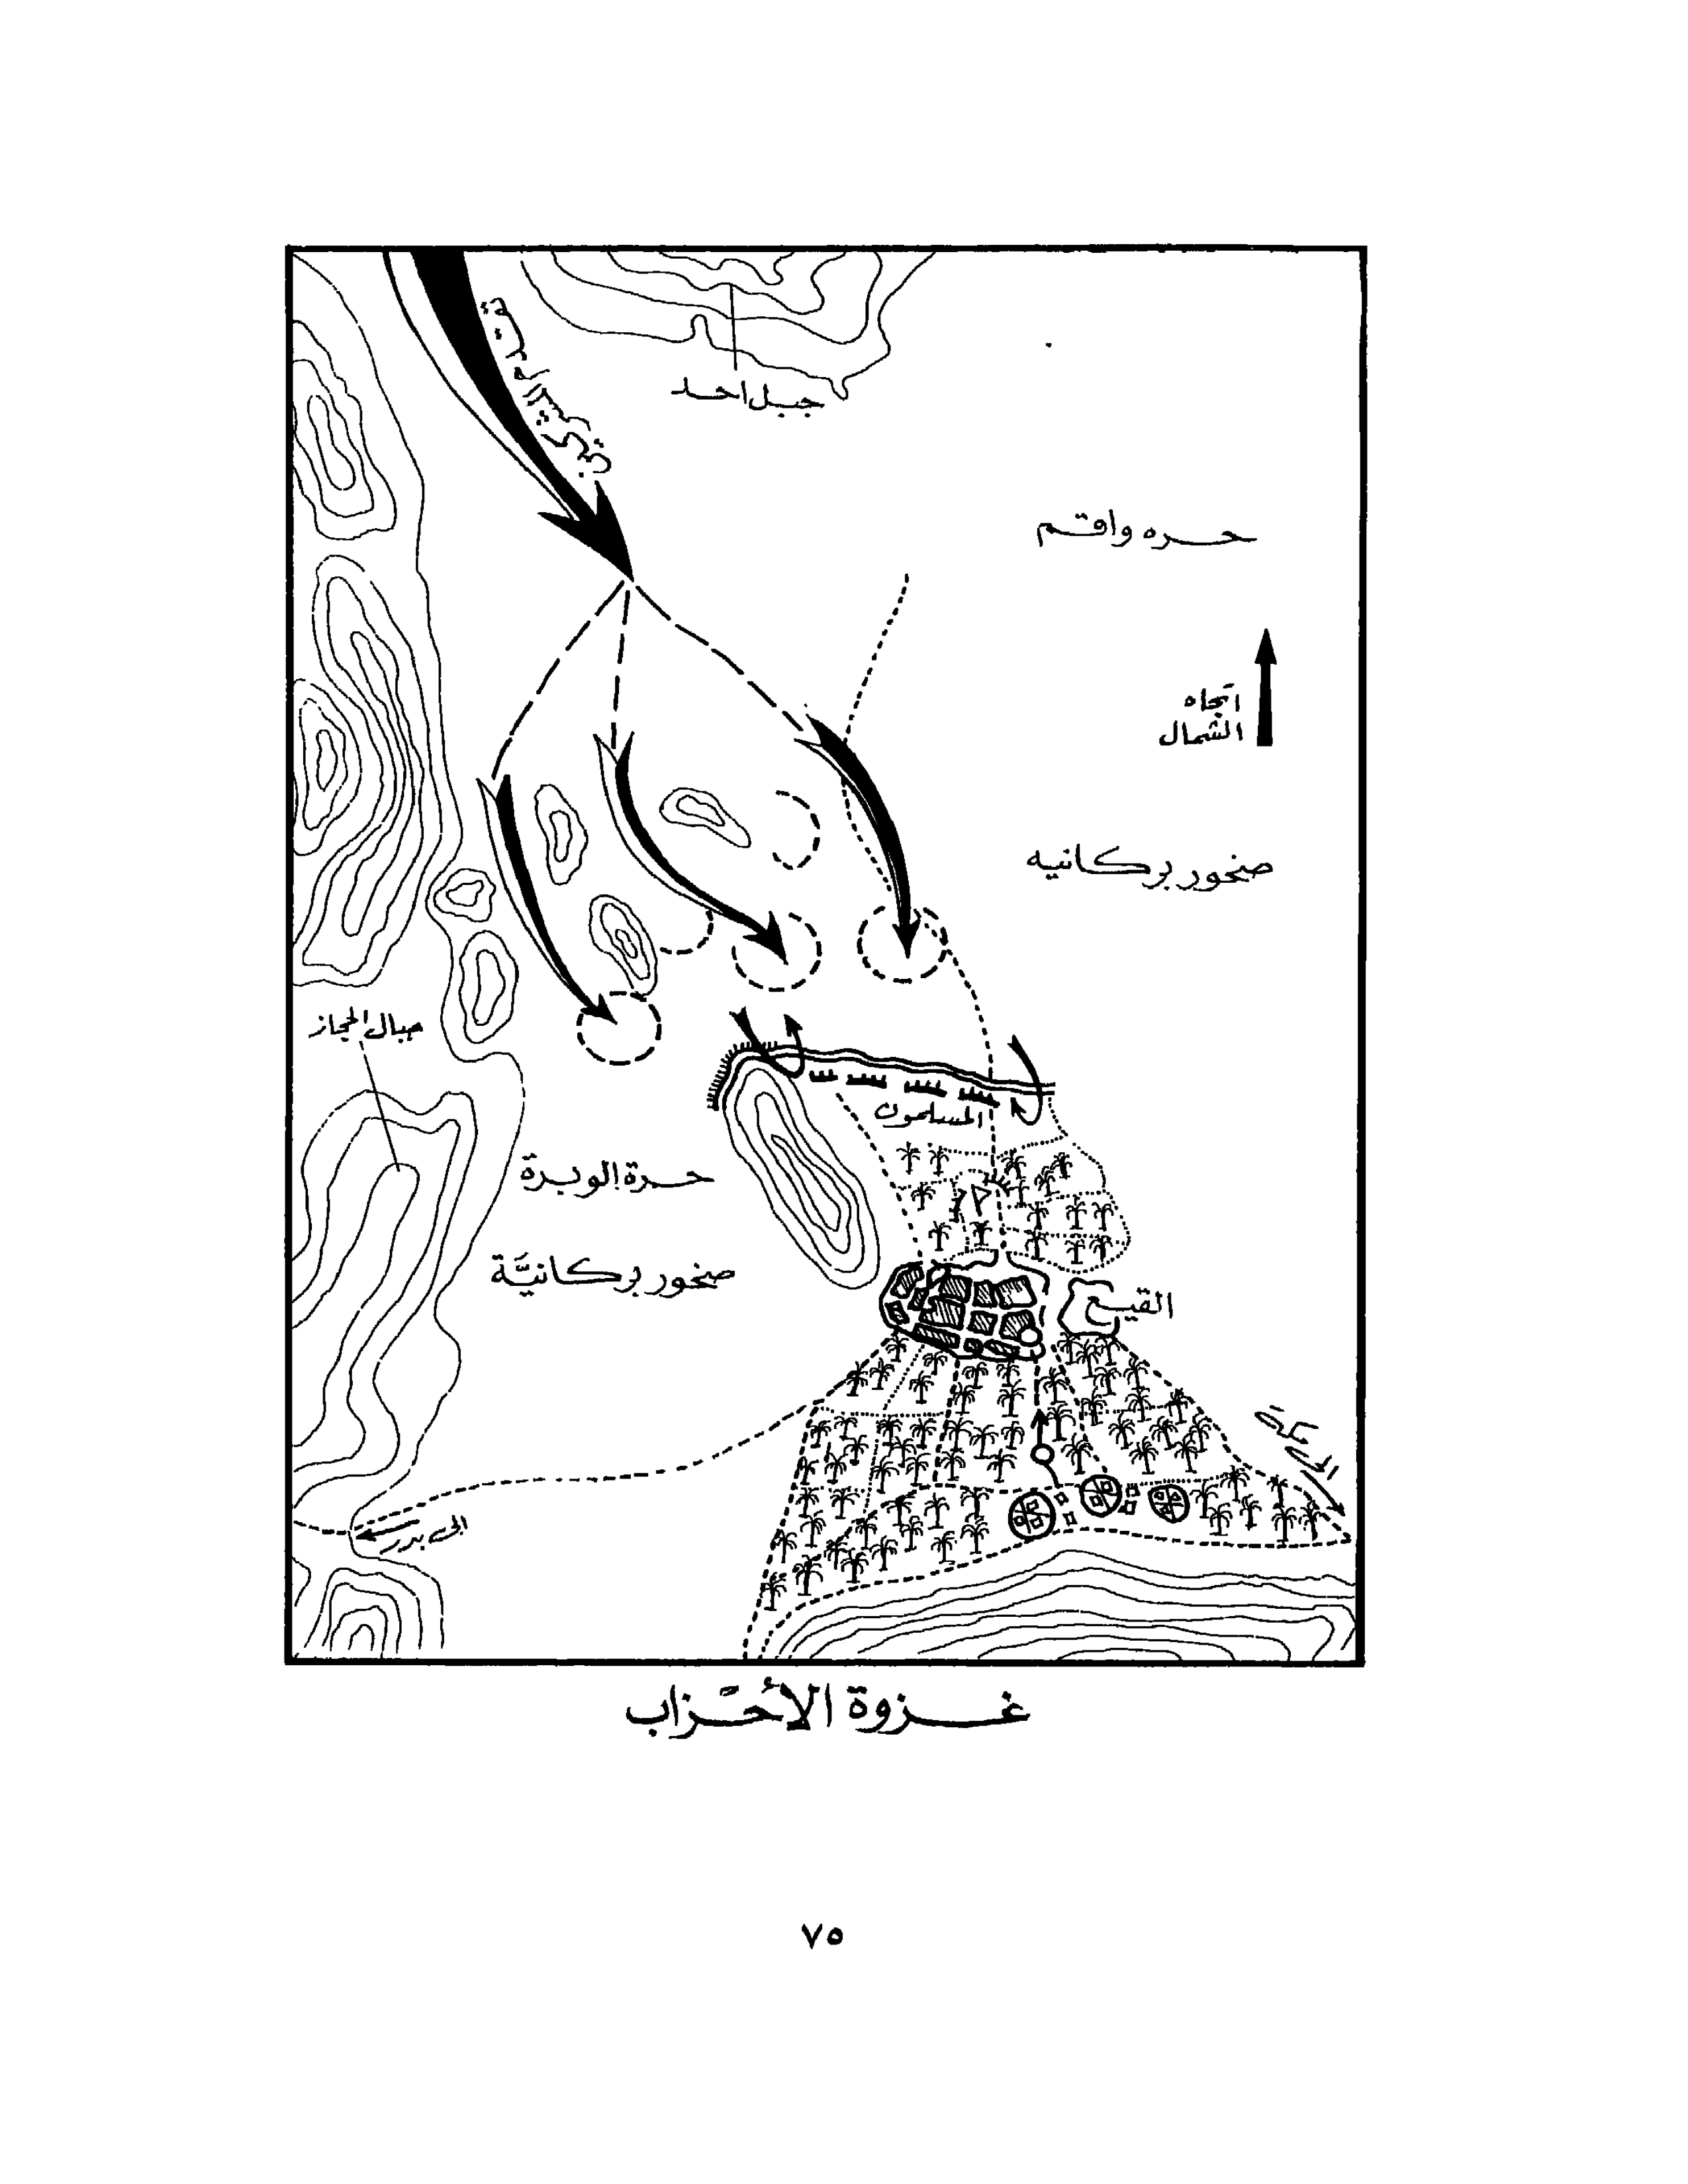 جبل احد
حره واقم
اتجاه
الشمال
صخور بركانيه
جبال الحجاز
المسلمون
حرة الوبرة
صخور بركانيَّة
القيع
الى مكة
الى بدر
غزوة الأحزاب
٧٥